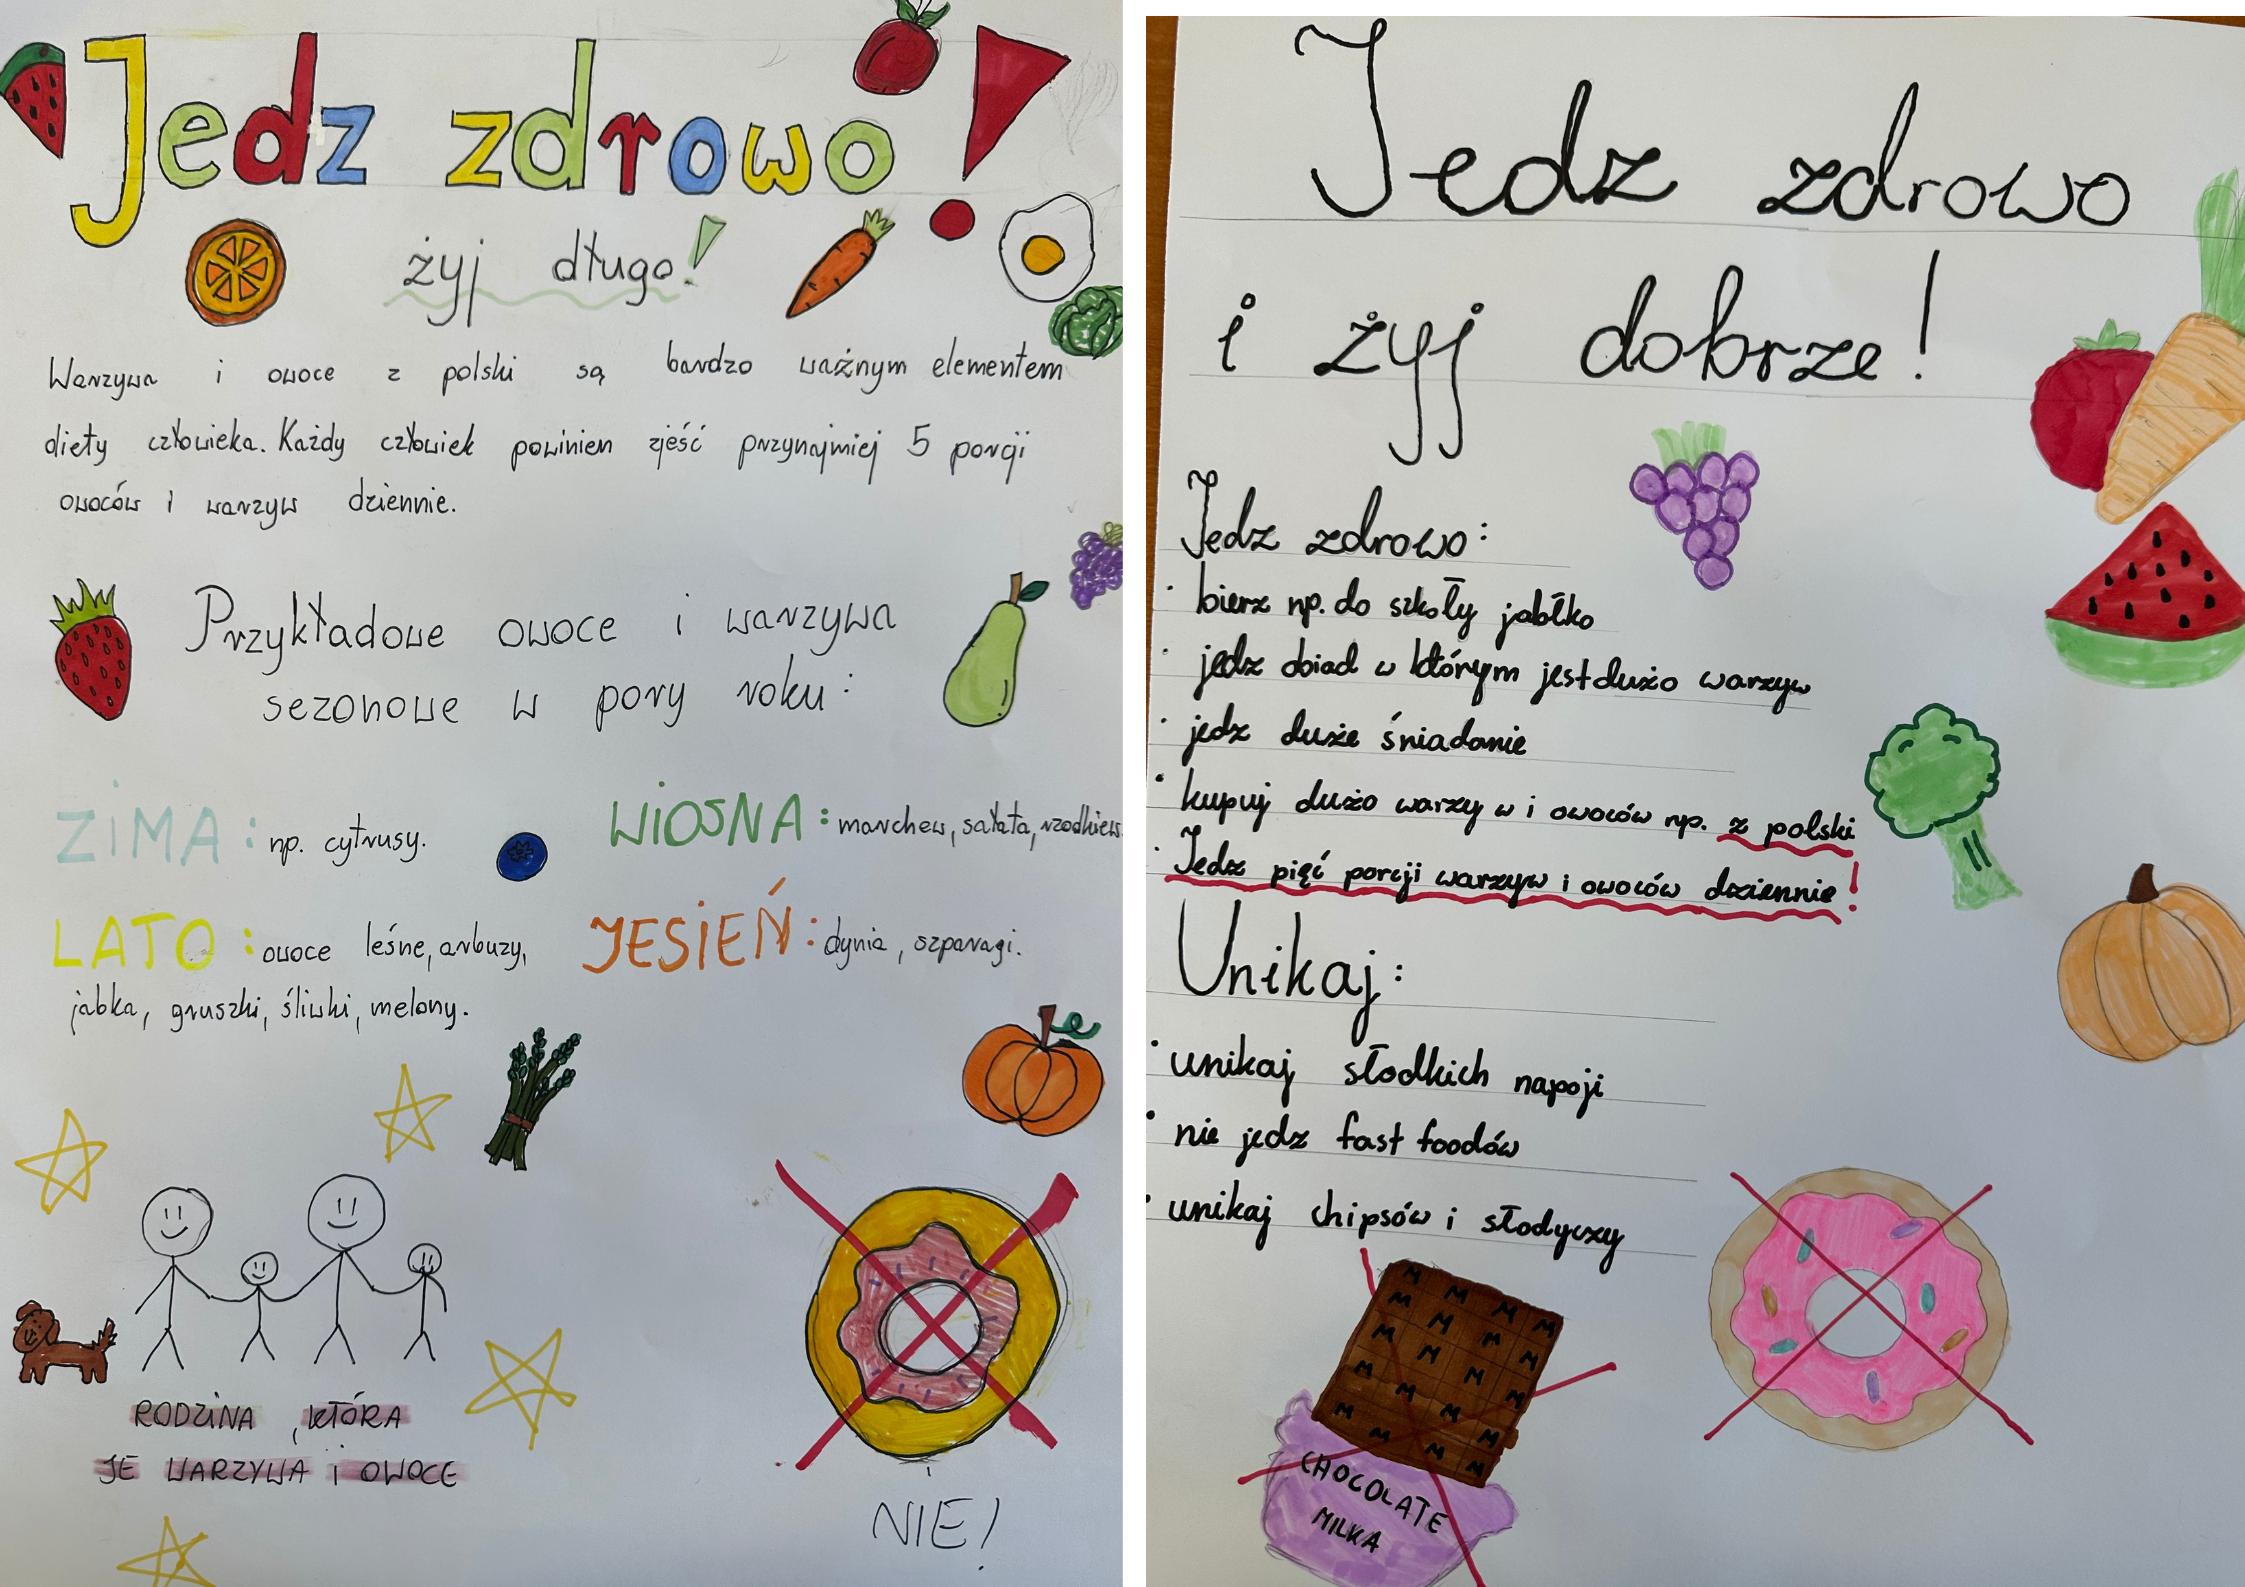 Jedz zdrowo!
żyj długo!
Warzywa i owoce z polski są bardzo ważnym elementem
diety człowieka. Każdy człowiek powinien zjeść przynajmniej 5 porcji
owoców i warzyw dziennie.
Przykładowe owoce i warzywa
sezonowe w pory roku:
ZIMA: np. cytrusy.
WIOSNA: marchew, sałata, rzodkiew
LATO: owoce leśne, arbuzy,
jabka, gruszki, śliwki, melony.
JESIEŃ: dynia, szparagi.
RODZINA, KTÓRA
JE WARZYWA i OWOCE
NIE!
Jedz zdrowo
i żyj dobrze!
Jedz zdrowo:
· bierz np. do szkoły jabłko
· jedz obiad w którym jest dużo warzyw
· jedz duże śniadanie
· kupuj dużo warzyw i owoców np. z polski
· Jedz pięć porcji warzyw i owoców dziennie!
Unikaj:
· unikaj słodkich napoji
· nie jedz fast foodów
· unikaj chipsów i słodyczy
M M M M
M M M M
M M M M
M M M M
M M M M
M M M M
CHOCOLATE
MILKA